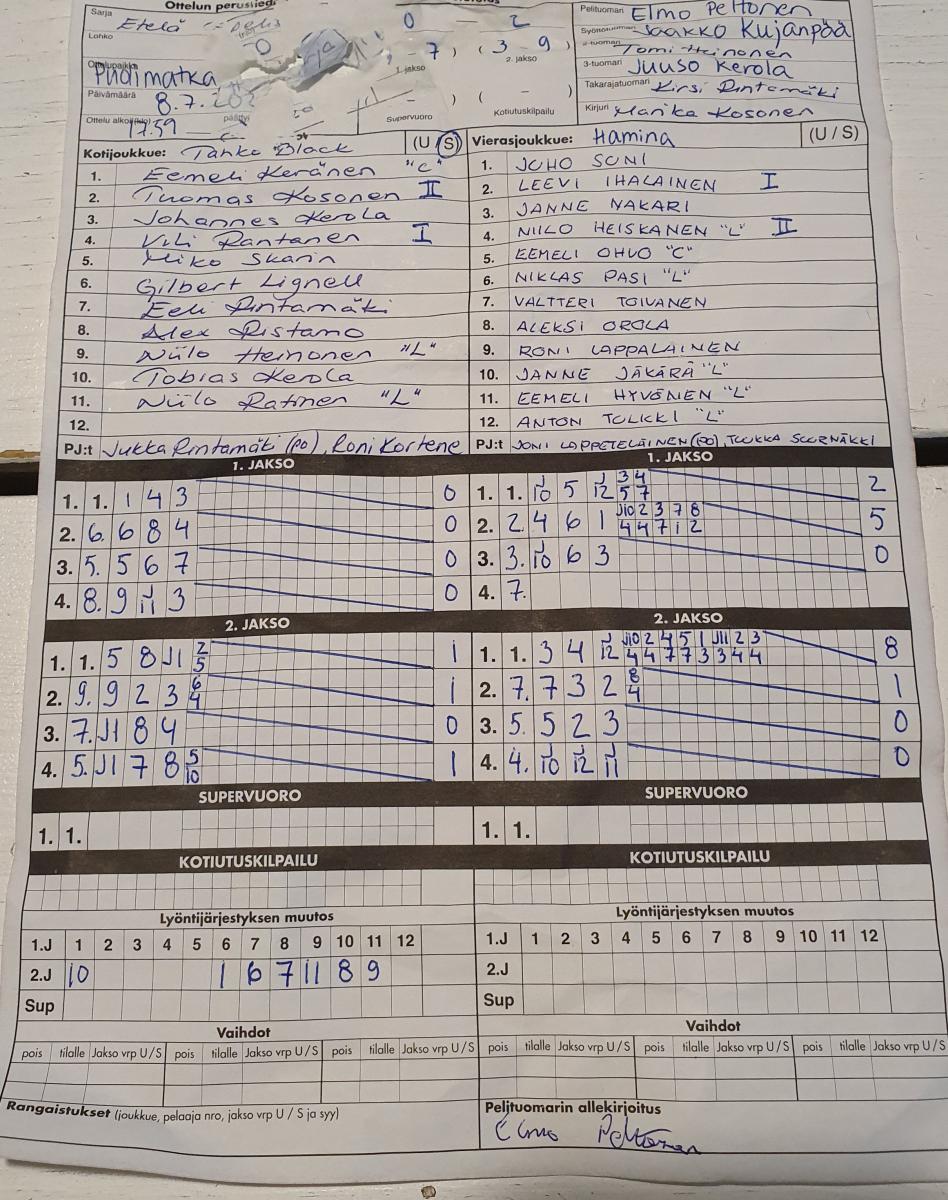 Ottelun perustiedot
Sarja Etelä
Lohko
0 - 2
- 7) (3 - 9)
1. jakso 2. jakso
Ottelupaikka Pudimatka
Päivämäärä 8.7.202
Ottelu alkoi (klo) 17.59 päättyi
Supervuoro Kotiutuskilpailu
Pelituomari Elmo Peltonen
Syöttötuomari Jaakko Kujanpää
2-tuomari Tomi Heinonen
3-tuomari Juuso Kerola
Takarajatuomari Kirsi Rintamäki
Kirjuri Marika Kosonen
Kotijoukkue: Tahko Black (U/S)
1. Eemeli Keränen "C"
2. Tuomas Kosonen II
3. Johannes Kerola
4. Vili Rantanen I
5. Miko Skarin
6. Gilbert Lignell
7. Eeli Rintamäki
8. Alex Ristamo
9. Niilo Heinonen "L"
10. Tobias Kerola
11. Niilo Ratinen "L"
12.
PJ:t Jukka Rintamäki (PO), Roni Kortene
Vierasjoukkue: Hamina (U/S)
1. JUHO SUNI
2. LEEVI IHALAINEN I
3. JANNE NAKARI
4. NIILO HEISKANEN "L" II
5. EEMELI OHVO "C"
6. NIKLAS PASI "L"
7. VALTTERI TOIVANEN
8. ALEKSI OROLA
9. RONI LAPPALAINEN
10. JANNE JÄKÄRÄ "L"
11. EEMELI HYVÖNEN "L"
12. ANTON TULIKKI "L"
PJ:t JONI LAPPETELÄINEN (PO), TUUKKA SUURNÄKKI
1. JAKSO
1. 1. 1 4 3 0
2. 6. 6 8 4 0
3. 5. 5 6 7 0
4. 8. 9 J11 3 0
1. JAKSO
1. 1. J10 5 J12 3/5 4/7 2
2. 2 4 6 1 J10/4 2/4 3/7 7/1 8/2 5
3. 3. J10 6 3 0
4. 7.
2. JAKSO
1. 1. 5 8 J1 2/5 1
2. 9. 9 2 3 6/4 1
3. 7. J1 8 4 0
4. 5. J1 7 8 5/10 1
2. JAKSO
1. 1. 3 4 J12 J10/4 2/4 4/7 5/7 1/3 J11/3 2/4 3/4 8
2. 7. 7 3 2 8/4 1
3. 5. 5 2 3 0
4. 4. J10 J12 J11 0
SUPERVUORO
1. 1.
SUPERVUORO
1. 1.
KOTIUTUSKILPAILU
KOTIUTUSKILPAILU
Lyöntijärjestyksen muutos
1.J 1 2 3 4 5 6 7 8 9 10 11 12
2.J 10 1 6 7 11 8 9
Sup
Lyöntijärjestyksen muutos
1.J 1 2 3 4 5 6 7 8 9 10 11 12
2.J
Sup
Vaihdot
pois tilalle Jakso vrp U/S pois tilalle Jakso vrp U/S pois tilalle Jakso vrp U/S
Vaihdot
pois tilalle Jakso vrp U/S pois tilalle Jakso vrp U/S pois tilalle Jakso vrp U/S
Rangaistukset (joukkue, pelaaja nro, jakso vrp U / S ja syy)
Pelituomarin allekirjoitus
Elmo Peltonen